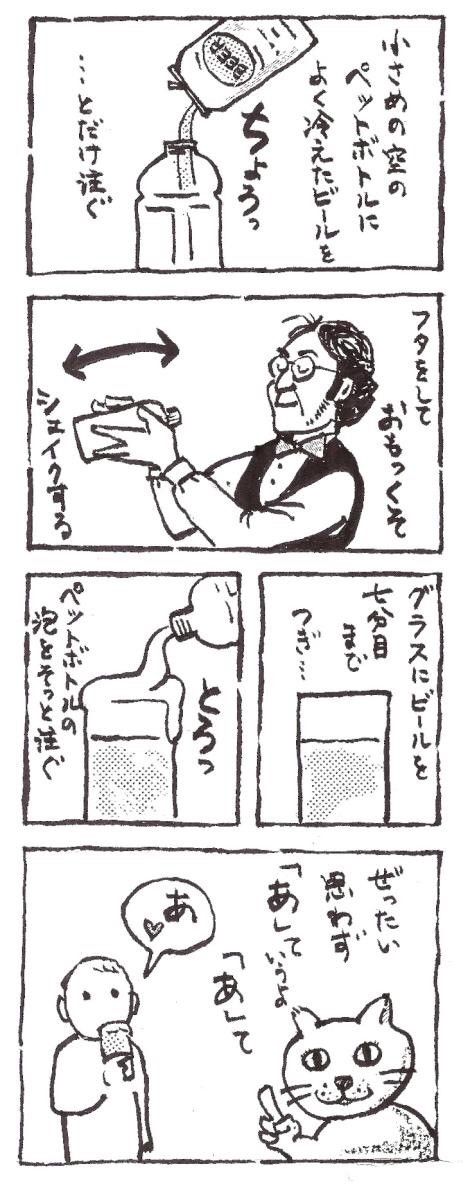 小さめの空の
ペットボトルに
よく冷えたビールを
BEER
ちょろっ
…とだけ注ぐ
フタをして
おもっくそ
シェイクする
グラスにビールを
七分目
まで
つぎ…
とろっ
ペットボトルの
泡をそっと注ぐ
ぜったい
思わず
「あ」て
いうよ
「あ」て
あ♡